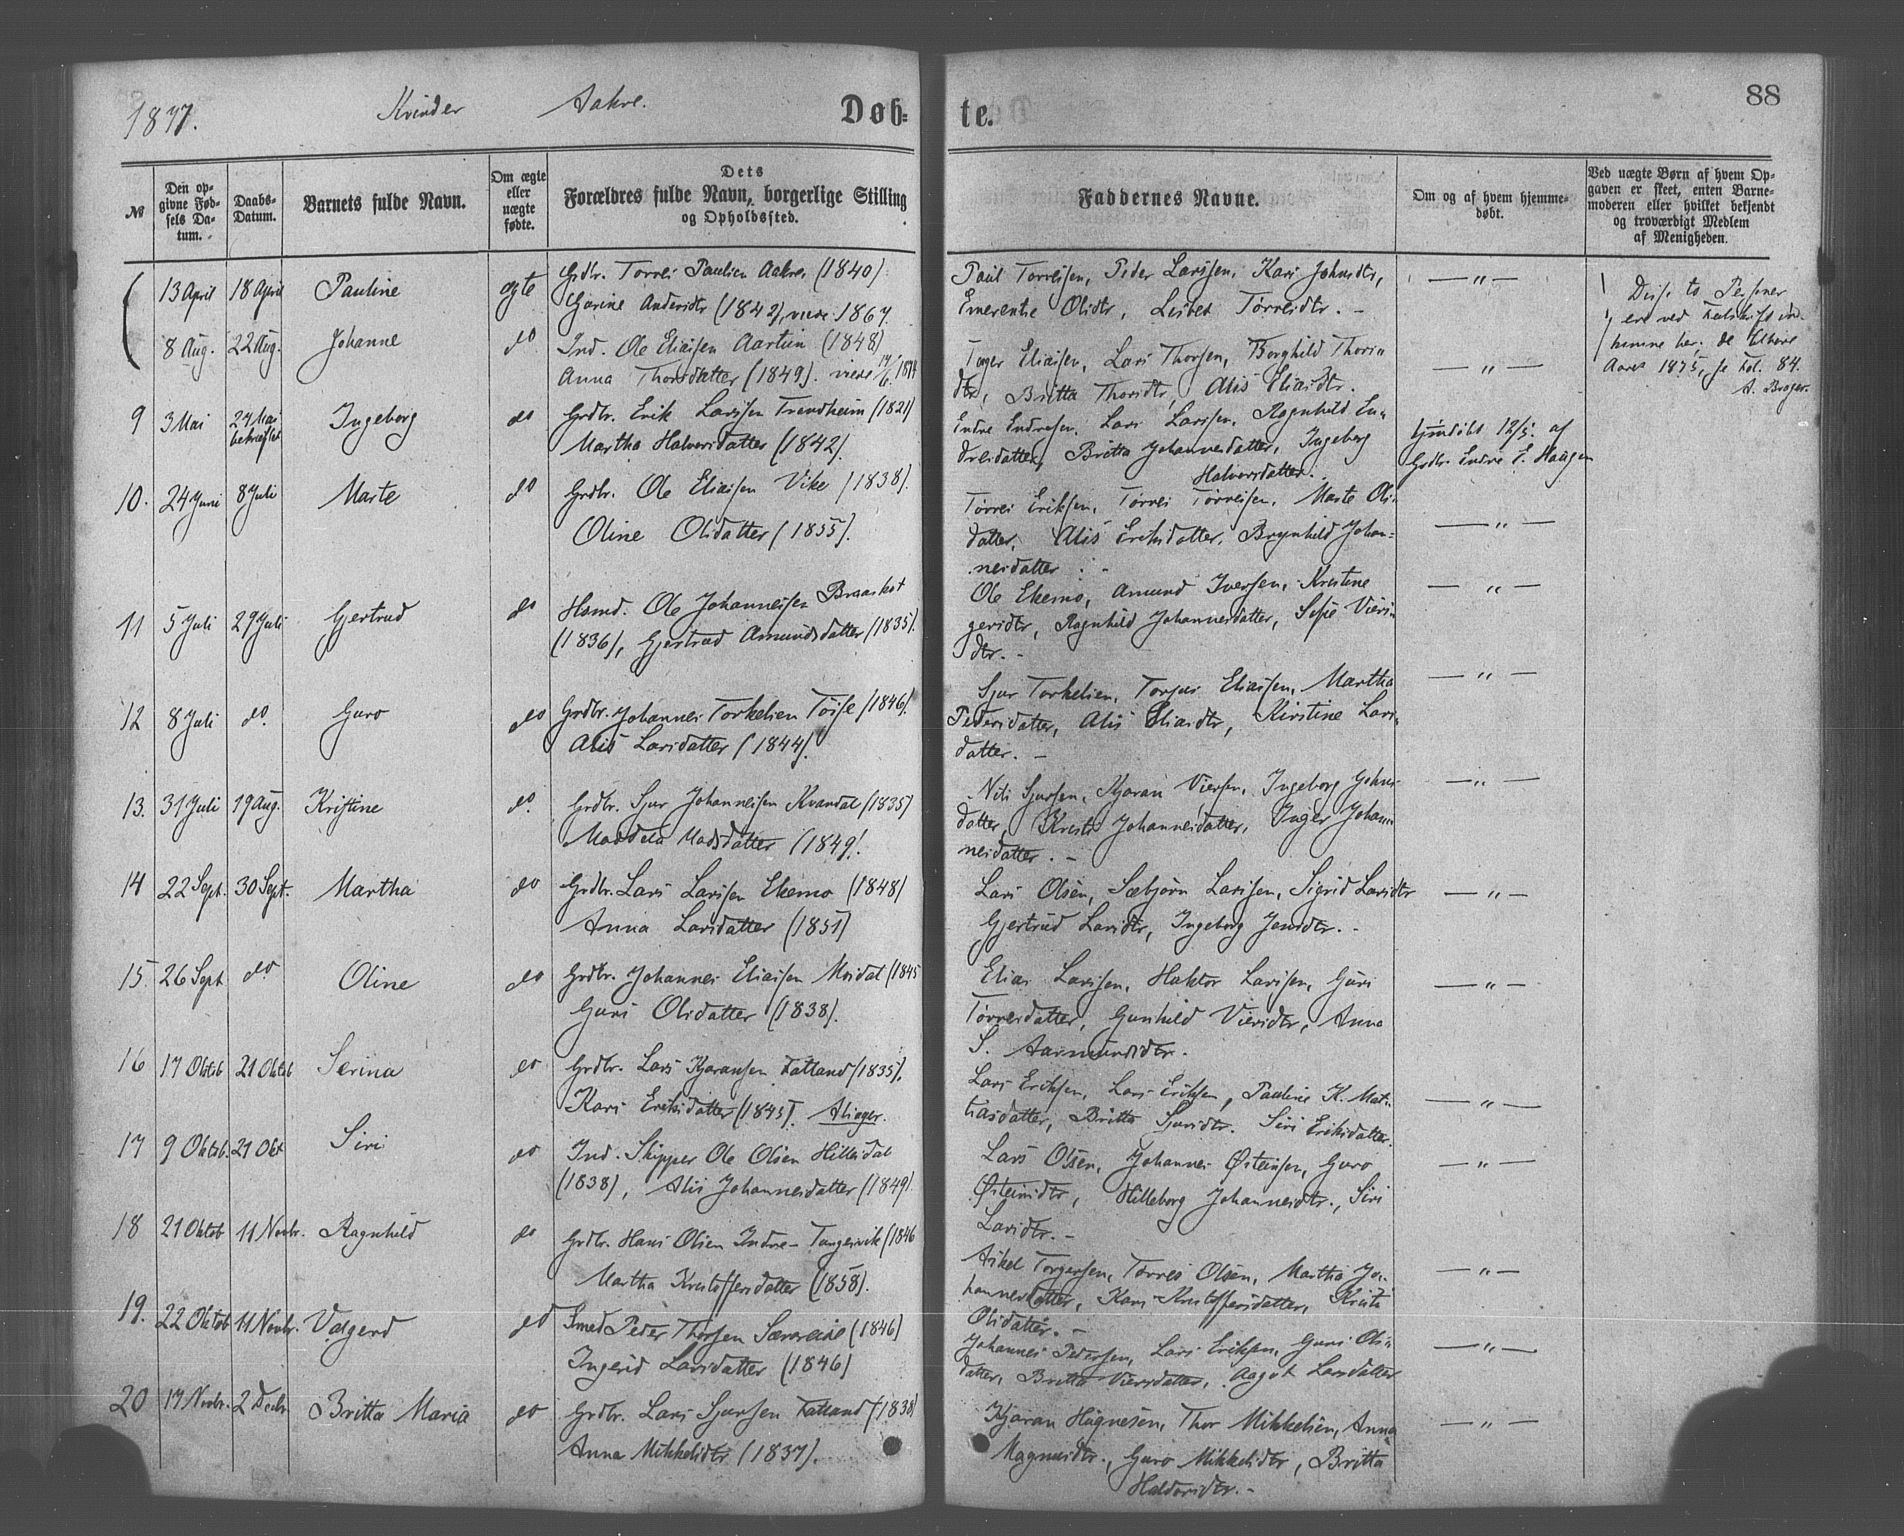 1877. Kvinder Aakre. Døb-
te. 88
№
Den op-
givne Fød-
sels Da-
tum.
Daabs-
Datum.
Barnets fulde Navn.
Om ægte
eller
uægte
fødte.
Dets
Forældres fulde Navn, borgerlige Stilling
og Opholdssted.
Faddernes Navne.
Om og af hvem hjemme-
døbt.
Ved uægte Børn af hvem Op-
gaven er skeet, enten Barne-
moderen eller hvilket bekjendt
og troværdigt Medlem
af Menigheden.
13 April 18 April Pauline ægte Grdbr. Torrei Paulsen Aakre (1840)
Gurine Andersdtr (1842), viede 1867.
Paul Torreisen, Peder Larssen, Kari Johnsdtr,
Emerentse Olsdtr, Lisbet Torreisdtr. -
— " —
Disse to Personer
ere ved
her. de tilhøre
Aaret 1875, se Fol. 84.
A. Brager.
8 Aug. 22 Aug. Johanne do Ind. Ole Eliassen Aartun (1848)
Anna Thorsdatter (1849). viede
Tøger Eliassen, Lars Thorsen, Borghild Thors-
dtr, Britta Thorsdtr, Alis Eliasdtr.
— " —
9 3 Mai 27 Mai bekræftet Ingeborg do Grdbr. Erik Larssen Trondheim (1821)
Martha Halvorsdatter (1842).
Endre Endresen, Lars Larssen, Ragnhild En-
dresdatter, Britta Johannesdatter, Ingeborg
Halvorsdatter.
hjmdøbt 12/5. af
Grdbr. Endre E. Haugen
10. 24 Juni 8 Juli Marte do Grdbr. Ole Eliassen Vike (1838).
Oline Olsdatter (1855).
Torrei Eriksen, Torrei Torreisen, Marte Ols-
datter, Alis Eriksdatter, Brynhild Johan-
nesdatter. -
— " —
11 5 Juli 29 Juli Gjertrud do Hsmd. Ole Johannessen Braarkot
(1836), Gjertrud Amundsdatter (1835).
Ole Ekemo, Amund Iversen, Kristine
Ragnhild Johannesdatter, Sofie Viers-
dtr. -
— " —
12 8 Juli do. Guro do Grdbr. Johannes Torkelsen Tøsse (1846).
Alis Larsdatter (1844).
Sjur Torkelsen, Torjus Eliassen, Martha
Pedersdatter, Alis Eliasdtr, Kirstine Lars-
datter. -
— " —
13. 31 Juli 19 Aug. Kristine do. Grdbr. Sjur Johannessen Kvandal (1835)
Maddela Madsdatter (1849).
Nils Sjursen, Kjaran Viersen, Ingeborg Johns-
datter, Kristi Johannesdatter, Inger Johan-
nesdatter. -
— " —
14 22 Sept. 30 Sept. Martha do Grdbr. Lars Larssen Ekemo (1848)
Anna Larsdatter (1851)
Lars Olsen, Sæbjørn Larssen, Sigrid Larsdtr
Gjertrud Larsdtr, Ingeborg Jensdtr. -
— " —
15. 26 Sept do Oline do Grdbr. Johannes Eliassen Mosdal (1845
Guri Olsdatter (1838).
Elias Larssen, Haktor Larssen, Guri
Torreisdatter, Gunhild Viersdtr, Anna
S. Aasmundsdtr.
— " —
16 17 Oktob 21 Oktob Serina do Grdbr. Lars Kjaransen Fatland (1835).
Kari Eriksdatter (1845). Alsager.
Lars Eriksen, Lars Eriksen, Pauline K. Mat-
hiasdatter, Britta Sjursdtr. Siri Eriksdatter.
— " —
17 9 Oktob. 21 Okt Siri do Ind. Skipper Ole Olsen Hillesdal
(1838), Alis Johannesdatter (1849).
Lars Olsen, Johannes Østeinsen, Guro
Østeinsdtr, Hilleborg Johannesdtr., Siri
Larsdtr. -
— " —
18 21 Oktob 11 Novbr. Ragnhild do Grdbr. Hans Olsen Indre-Tungesvik (1846
Martha Kristoffersdatter (1858).
Askel Torgersen, Torres Olsen, Martha Jo-
hannesdatter, Kari Kristoffersdatter, Kristi
Olsdatter. -
— " —
19. 22 Oktob 11 Novbr. Valgerd do Smed Peder Thorsen Særereide (1846)
Ingerid Larsdatter (1846)
Johannes Pedersen, Lars Eriksen, Guri Ols-
datter, Britta Viersdatter, Aagot Larsdatter
— " —
20 17 Novbr. 2 Decbr Britta Maria do Grdbr. Lars Sjursen Fatland (1838)
Anna Mikkelsdtr (1837).
Kjaran Høgnesen, Thor Mikkelsen, Anna
Magnusdtr., Guro Mikkelsdtr, Britta
Haldorsdtr. -
— " —